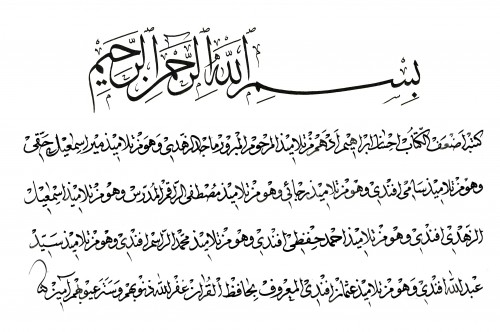 بسم الله الرحمن الرحيم
كتبه اضعف الكتاب ابراهيم ادهم من تلاميذ المرحوم المبرور ماجد الزهدي وهو من تلاميذ مير اسمعيل حقي
وهو من تلاميذ سامي افندي وهو من تلاميذ رجائي وهو من تلاميذ مصطفى الراقم المدرس وهو من تلاميذ اسمعيل
الزهدي افندي وهو من تلاميذ احمد حفظي افندي وهو من تلاميذ محمد الراسم افندي وهو من تلاميذ سيد
عبد الله افندي وهو من تلاميذ عثمان افندي المعروف بحافظ القرآن غفر الله ذنوبهم وستر عيوبهم آمين